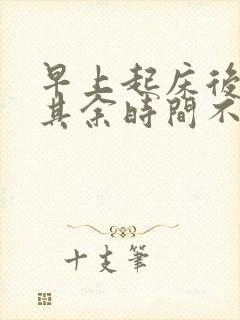 早上起床後
其余時間不
十支筆